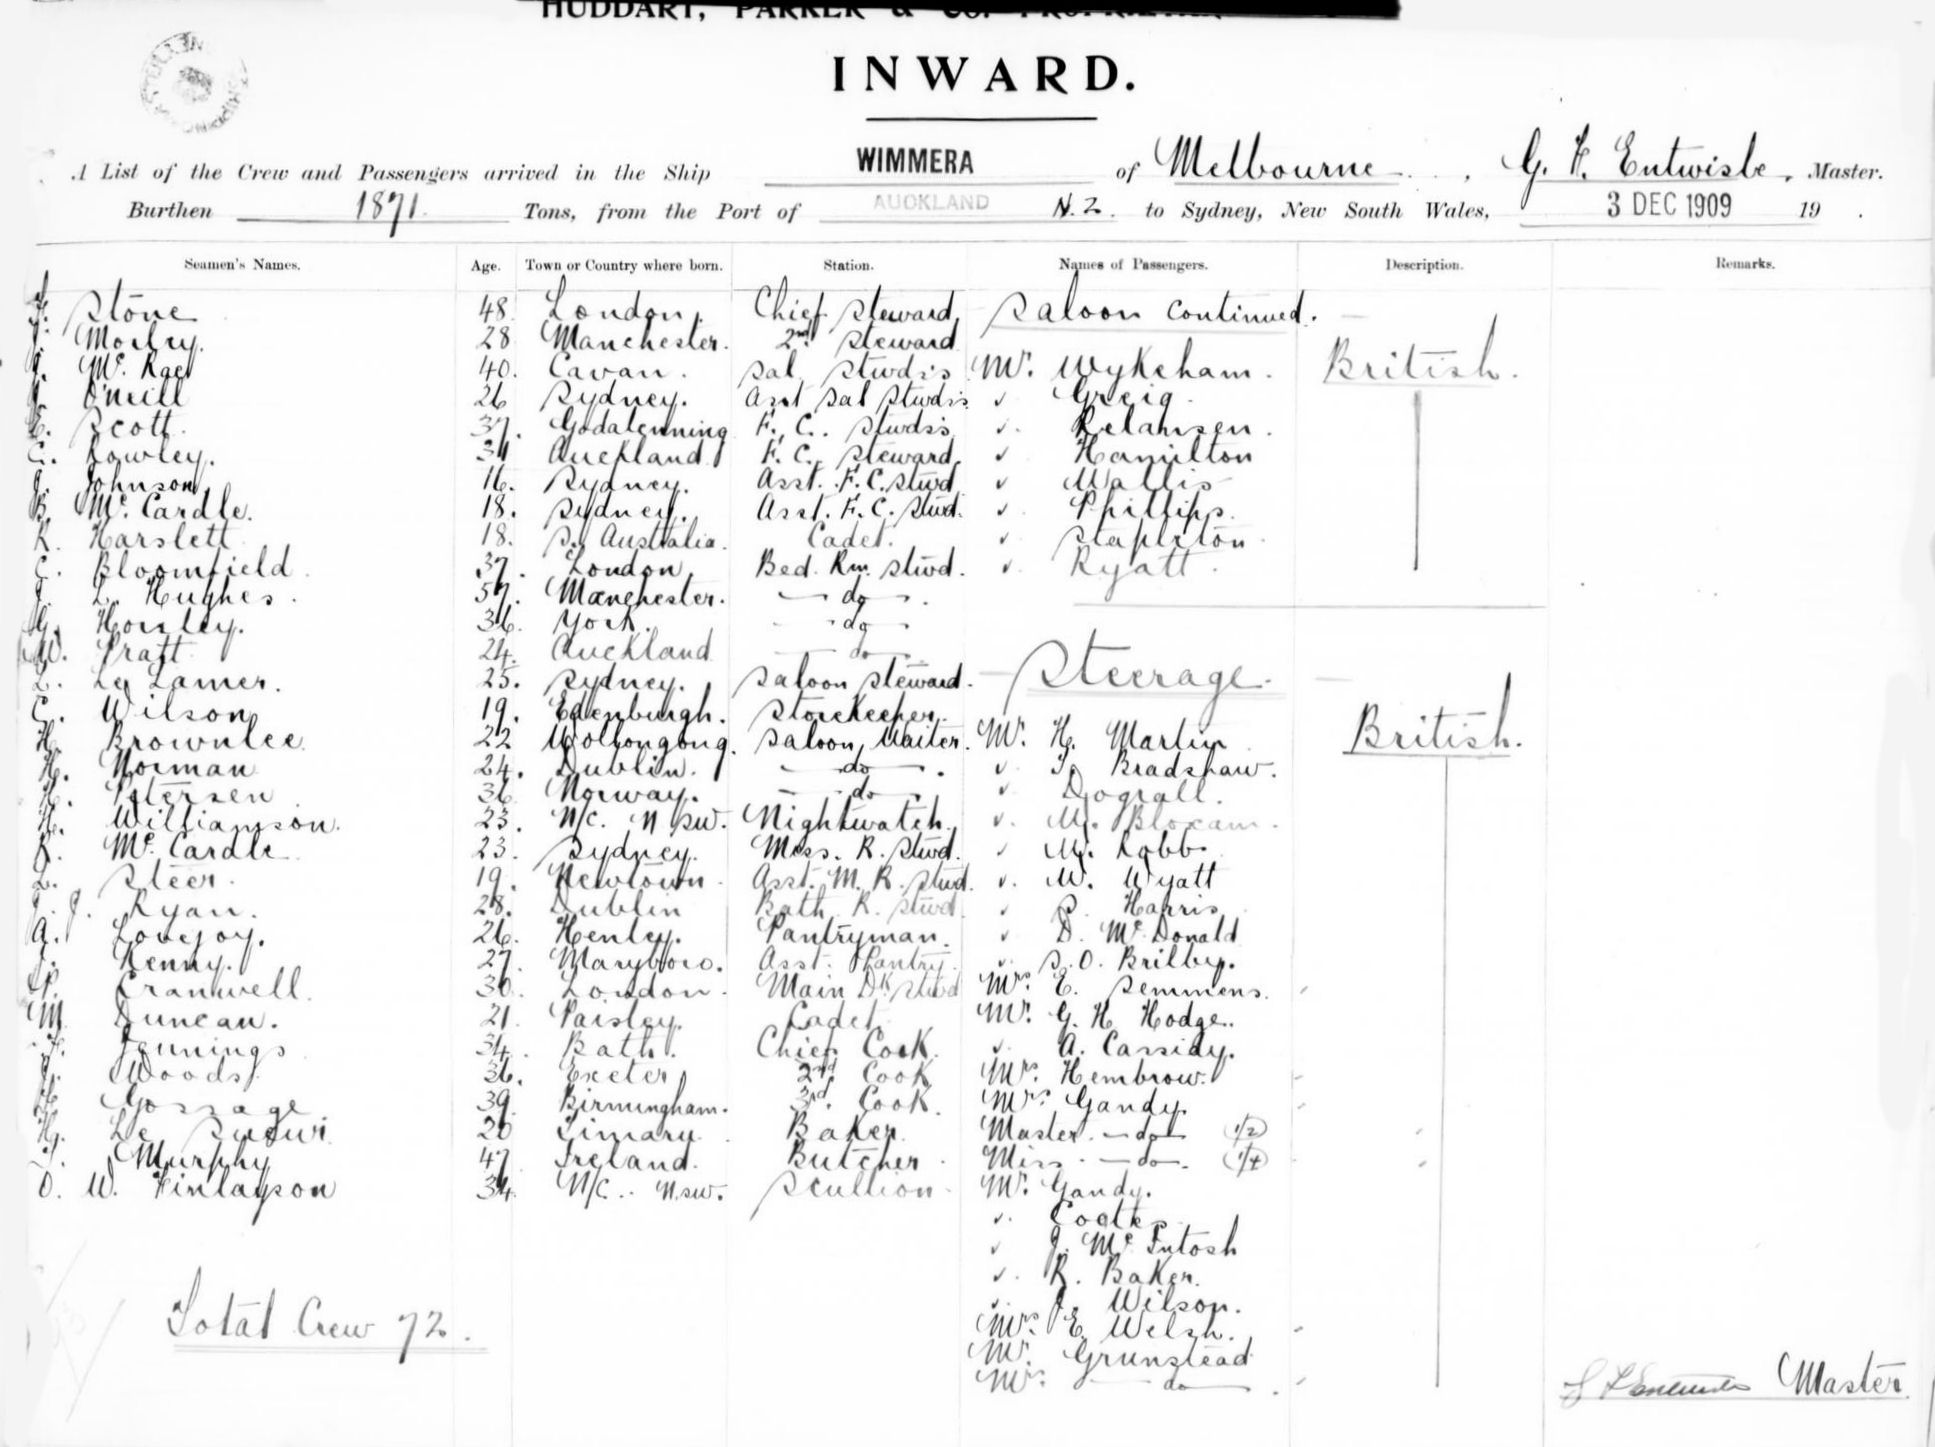 HUDDART, PARKER & CO. PROPRIETARY
INWARD.
A List of the Crew and Passengers arrived in the Ship WIMMERA of Melbourne, G. F. Entwisle, Master.
Burthen 1871. Tons, from the Port of AUCKLAND N.Z. to Sydney, New South Wales, 3 DEC 1909 19 .
Seamen's Names. Age. Town or Country where born. Station. Names of Passengers. Description. Remarks.
Stone 48 London. Chief Steward Saloon continued.
Morley. 28 Manchester. 2nd Steward
Mc. Rae 40. Cavan. Sal. Stwdss Mr. Wykeham. British.
O'Neill 26 Sydney. Asst Sal Stwdss Greig
E. Scott. 37. Godalenning F. C. Stwdss
C. Rowley. 31 Auckland F. C. Steward Hamilton
J. Johnson 16. Sydney. Asst. F. C. Stwd Wallis
B. Mc. Cardle. 18. Sydney. Asst. F. C. Stwd. Phillips.
R. Harslett 18. S. Australia. Cadet. Stapleton
C. Bloomfield. 37. London Bed. Rm. Stwd. Ryatt.
J. L. Hughes. 57. Manchester. do
G. Horsley. 36. York. do
W. Pratt 24. Auckland do
L. Le Lamer. 25. Sydney. Saloon Steward. Steerage.
C. Wilson 19. Edenburgh. Storekeeper.
H. Brownlee. 22 Wollongong. Saloon Waiter. Mr. H. Martin British.
H. Norman 24. Dublin. do. Bradshaw.
H. Petersen 36 Norway. do Dograll.
H. Williamson. 23. N/c. N SW. Nightwatch. M. Bloxam.
R. Mc. Cardle 23. Sydney. Mess. R. Stwd. M. Robb
L. Steer. 19. Newtown Asst. M. R. Stwd. W. Wyatt
J. J. Ryan. 28. Dublin Bath R. Stwd. S. Harris
A. Lovejoy. 26. Henley. Pantryman. D. Mc Donald
J. Kenny. 27. Maryboro. Asst. Pantry. S. O. Brilby.
Cranwell. 30. London. Main Dk Stwd Mrs. E. Semmens.
M Duncan. 21. Paisley. Cadet. Mr. G. H Hodge.
F. Jennings 34. Bath. Chief Cook. A. Cassidy.
J. Woods. 36. Exeter 2nd Cook Mrs. Hembrow.
H Gossage. 39 Birmingham. 3rd. Cook. Mrs. Gandy.
H. Le Sueur. 20 Timaru. Baker. Master. do (1/2)
J. Murphy 47 Ireland. Butcher. Miss. do. (1/4)
D. W. Finlayson 34. N/c.. N.SW. Scullion Mr. Gandy.
Coates
J. Mc Intosh
R. Baker.
J. Wilson.
Total Crew 72. Mrs. E. Welsh.
Mr. Grunstead
Mrs. do.
Master